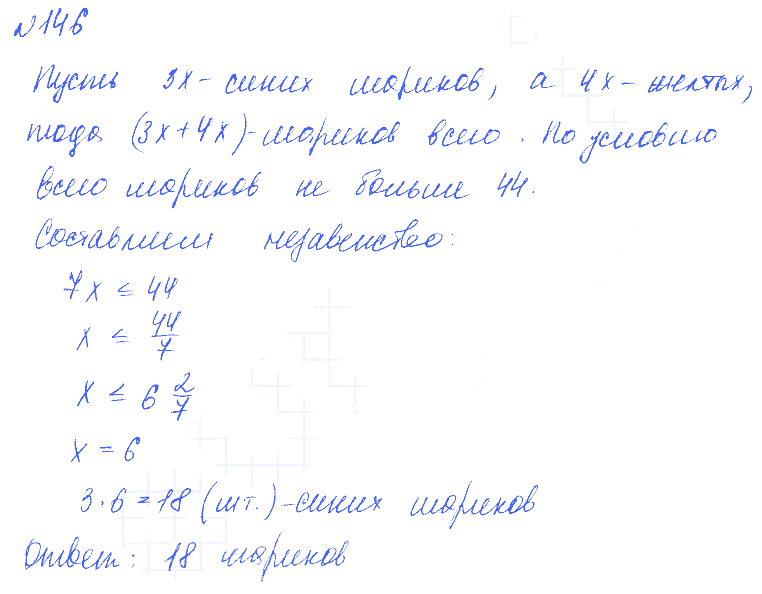 №146
Пусть 3x - синих шариков, а 4x - желтых,
тогда (3x+4x) - шариков всего. По условию
всего шариков не больше 44.
Составляем неравенство:
7x ≤ 44
x ≤ 44/7
x ≤ 6 2/7
x = 6
3·6=18 (шт.) - синих шариков
Ответ: 18 шариков